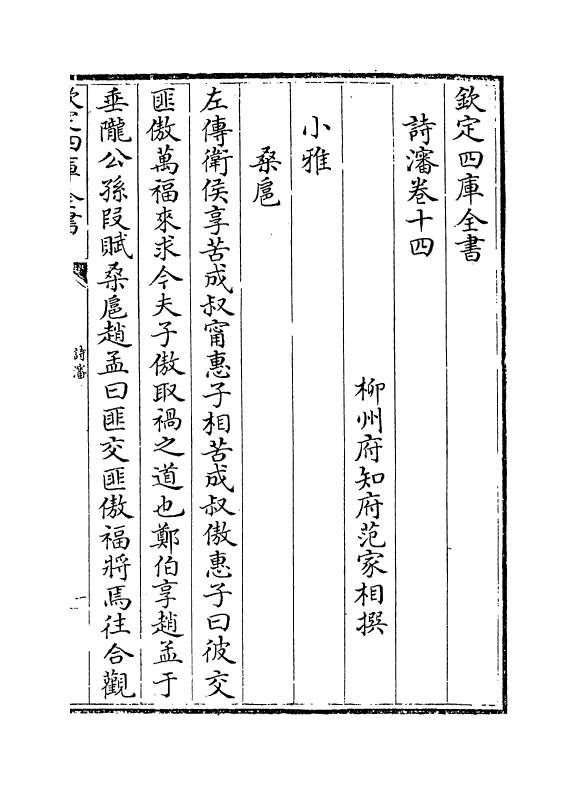 欽定四庫全書
詩瀋卷十四
柳州府知府范家相撰
小雅
桑扈
左傳衛侯享苦成叔甯惠子相苦成叔傲惠子曰彼交
匪傲萬福來求今夫子傲取禍之道也鄭伯享趙孟于
垂隴公孫段賦桑扈趙孟曰匪交匪傲福將焉往合觀
欽定四庫全書
詩瀋
一